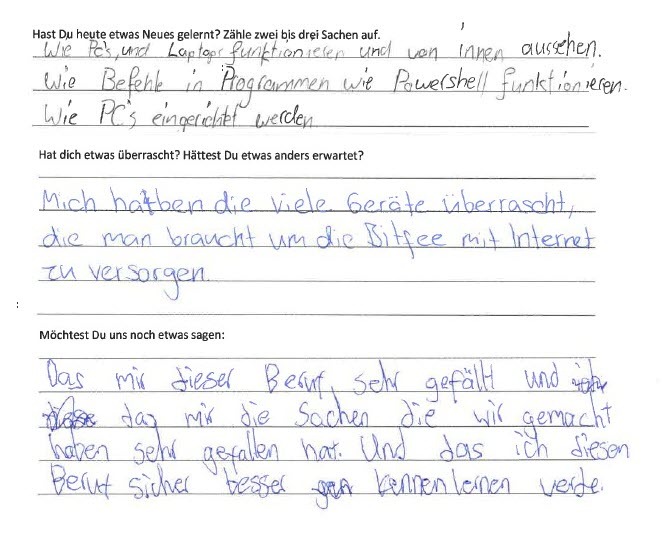 Hast Du heute etwas Neues gelernt? Zähle zwei bis drei Sachen auf.
Wie Pc's, und Laptops funktionieren und von innen aussehen.
Wie Befehle in Programmen wie Powershell funktionieren.
Wie PC's eingerichtet werden
Hat dich etwas überrascht? Hättest Du etwas anders erwartet?
Mich haben die viele Geräte überrascht,
die man braucht um die Bitfee mit Internet
zu versorgen.
:
Möchtest Du uns noch etwas sagen:
Das mir dieser Beruf, sehr gefällt und
das mir die Sachen die wir gemacht
haben sehr gefallen hat. Und das ich diesen
Beruf sicher besser kennenlernen werde.